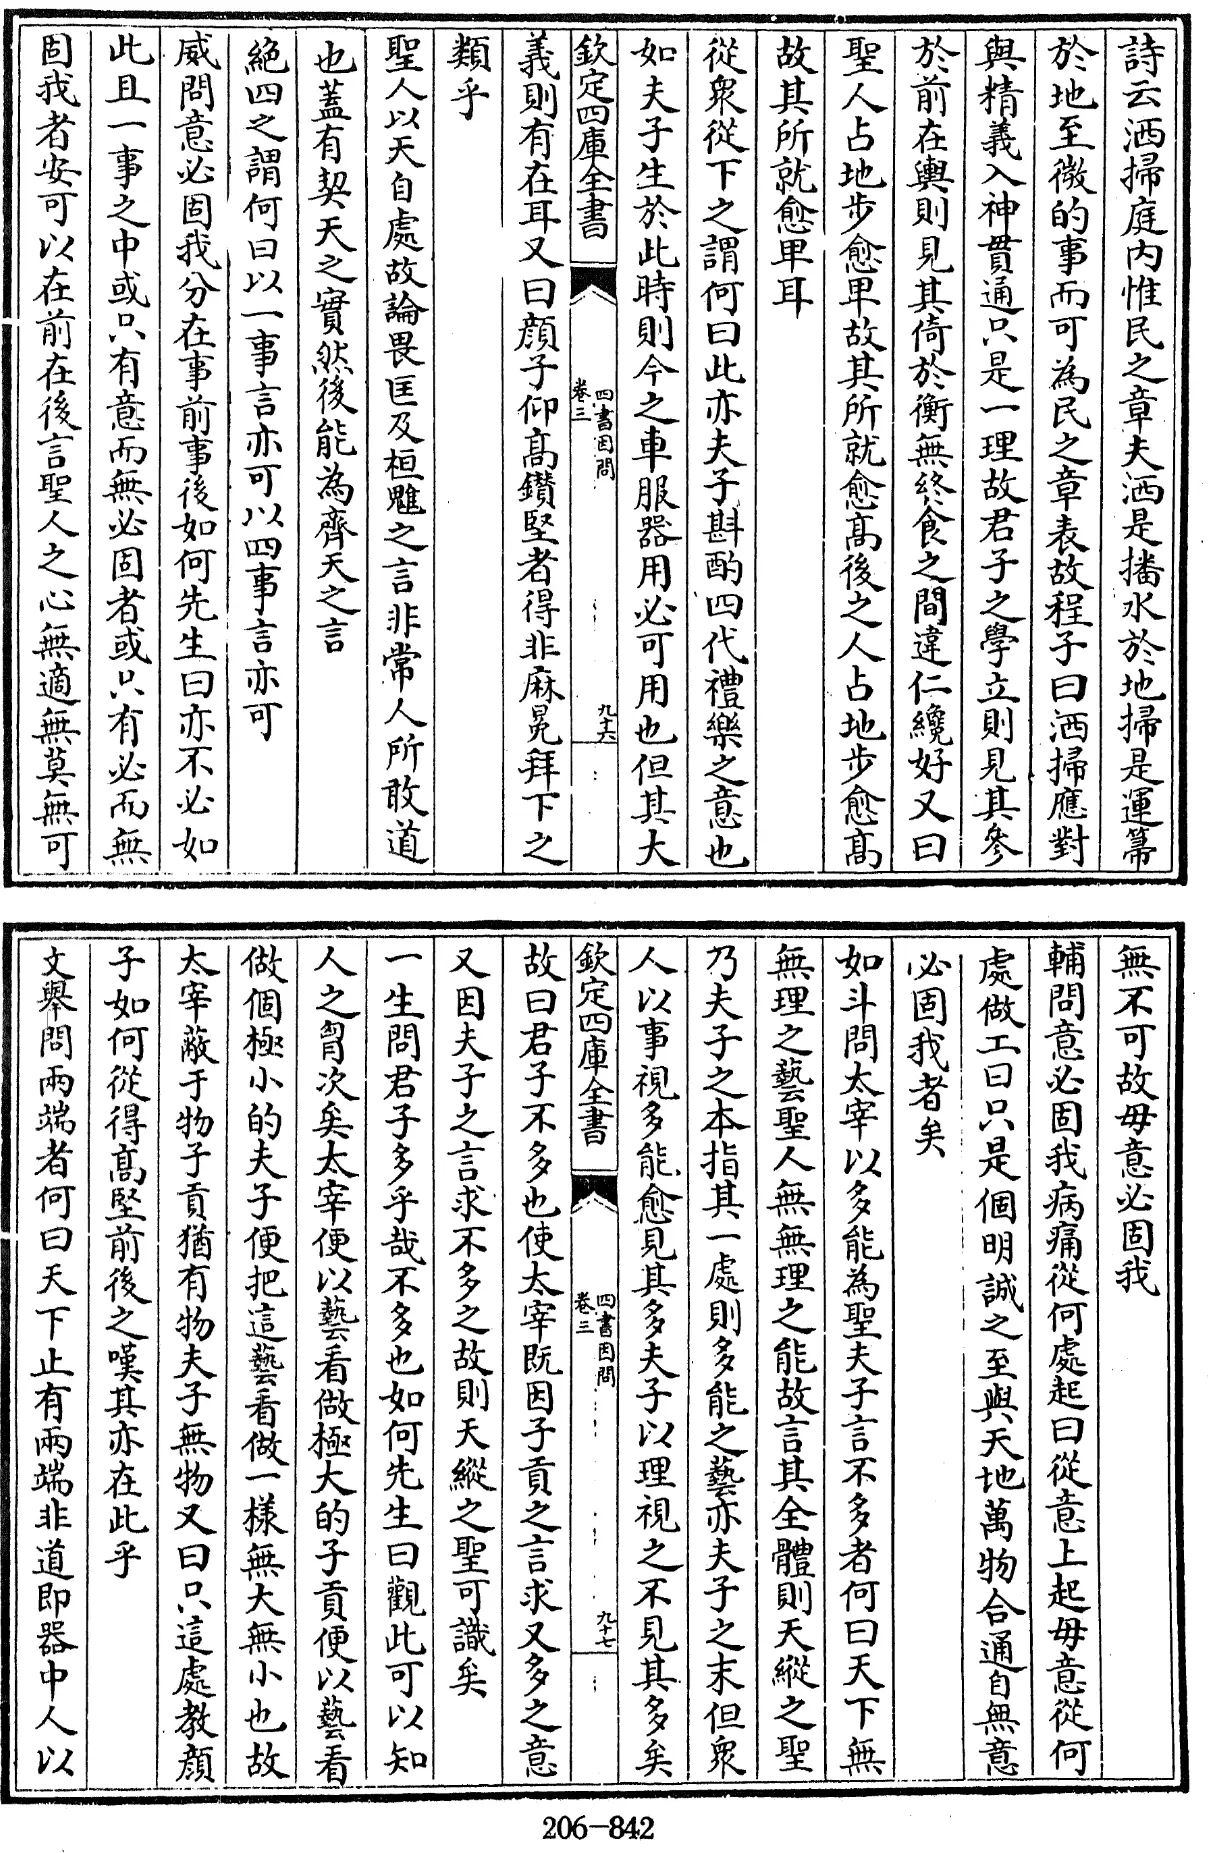 詩云洒掃庭内惟民之章夫洒是播水於地掃是運箒
於地至微的事而可為民之章表故程子曰洒掃應對
與精義入神貫通只是一理故君子之學立則見其參
於前在輿則見其倚於衡無終食之間違仁纔好又曰
聖人占地步愈卑故其所就愈高後之人占地步愈高
故其所就愈卑耳
從衆從下之謂何曰此亦夫子斟酌四代禮樂之意也
如夫子生於此時則今之車服器用必可用也但其大
欽定四庫全書
四書因問
卷三
九十六
義則有在耳又曰顔子仰高鑚堅者得非麻冕拜下之
類乎
聖人以天自處故論畏匡及桓魋之言非常人所敢道
也蓋有契天之實然後能為齊天之言
絶四之謂何曰以一事言亦可以四事言亦可
威問意必固我分在事前事後如何先生曰亦不必如
此且一事之中或只有意而無必固者或只有必而無
固我者安可以在前在後言聖人之心無適無莫無可
無不可故毋意必固我
輔問意必固我病痛從何處起曰從意上起毋意從何
處做工曰只是個明誠之至與天地萬物合通自無意
必固我者矣
如斗問太宰以多能為聖夫子言不多者何曰天下無
無理之藝聖人無無理之能故言其全體則天縱之聖
乃夫子之本指其一處則多能之藝亦夫子之末但衆
人以事視多能愈見其多夫子以理視之不見其多矣
欽定四庫全書
四書因問
卷三
九十七
故曰君子不多也使太宰既因子貢之言求又多之意
又因夫子之言求不多之故則天縱之聖可識矣
一生問君子多乎哉不多也如何先生曰觀此可以知
人之胷次矣太宰便以藝看做極大的子貢便以藝看
做個極小的夫子便把這藝看做一様無大無小也故
太宰蔽于物子貢猶有物夫子無物又曰只這處教顔
子如何從得高堅前後之嘆其亦在此乎
文舉問兩端者何曰天下止有兩端非道即器中人以
206-842